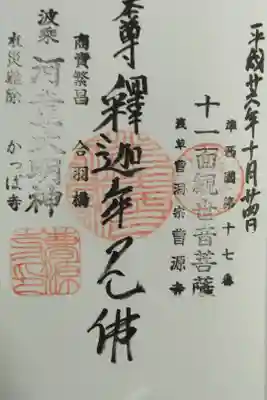 平成廿六年十月廿四日
準西國第十七番
十一面観世音菩薩
浅草曹洞宗曹源寺
本尊釋迦牟尼佛
合羽橋
商賣繁昌
波乘河童大明神
かっぱ寺
水災難除
曹源寺印